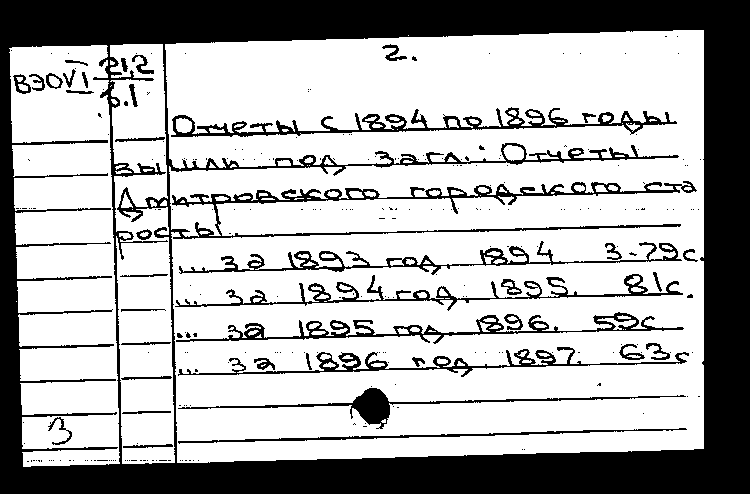 2.
ВЭО VI 21,2
б.1
Отчеты с 1894 по 1896 годы
вышли под загл.: Отчеты
Дмитровского городского ста
росты.
... за 1893 год. 1894. 3-79с.
... за 1894 год. 1895. 81с.
... за 1895 год. 1896. 59с
... за 1896 год. 1897. 63с.
З